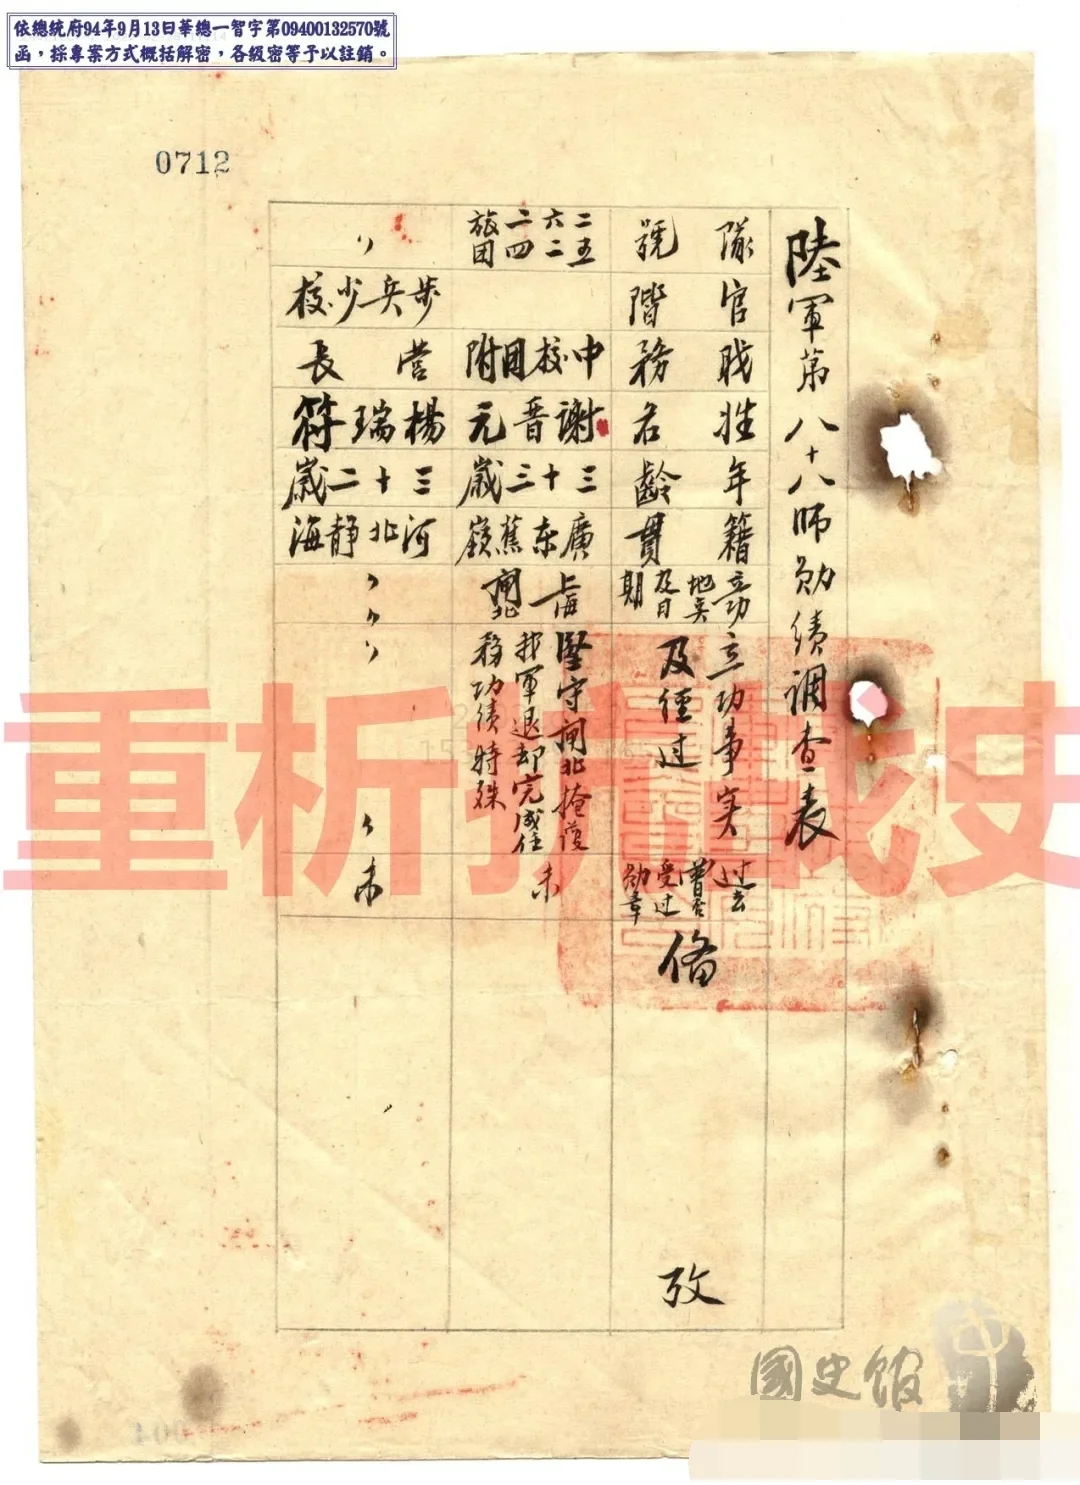 依總統府94年9月13日華總一智字第09400132570號
函，採專案方式概括解密，各級密等予以註銷。
0712
陸軍第八十八師勋绩調查表
隊號
官階
戝務
姓名
年齡
籍貫
立功地奌及日期
立功事实及經过
过去曾否受过勋章
俻攷
二六二旅
五二四团
中校团附
謝晋元
三十三歲
廣东蕉嶺
上海閘北
堅守閘北掩護
我軍退却完成任
務功绩特殊
未
〃
步兵少校
營長
楊瑞符
三十二歲
河北静海
〃
〃
未
重析抗戰史
國史館